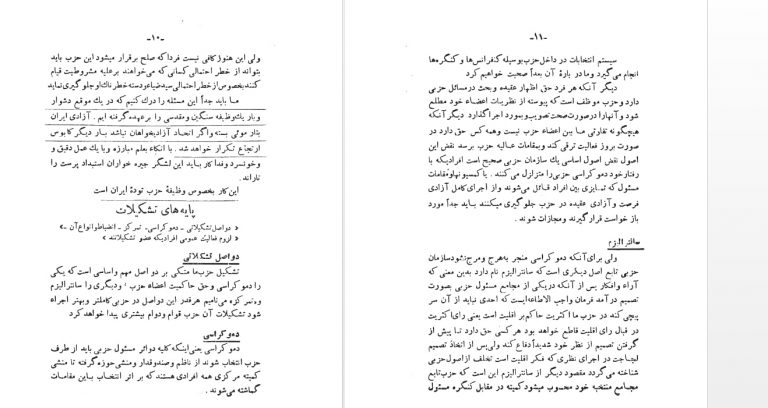 -۱۰-
ولی این هنوز کافی نیست فردا که صلح برقرار میشود این حزب باید
بتواند از خطر احتمالی کسانی که می‌خواهند بر علیه مشروطیت قیام
کنند بخصوص از خطر احتمالی سید ضیاء و دسته خطرناك او جلوگیری نماید
ما باید جداً این مسئله را درك کنیم که در یك موقع دشوار
و باریك وظیفه سنگین و مقدسی را بر عهده گرفته ایم. آزادی ایران
بتار موئی بسته و اگر اتحاد آزادیخواهان نباشد بار دیگر کابوس
ارتجاع تکرار خواهد شد. با اتکاء بعلم مبارزه و با یك عمل دقیق و
و خونسرد و فداکار باید این لشگر جیره خواران استبداد پرست را
تاراند.
این کار بخصوص وظیفهٔ حزب تودهٔ ایران است
پایه های تشکیلات
دو اصل تشکیلاتی - دموکراسی - تمرکز - انضباط و انواع آن -
لزوم فعالیت عمومی افرادیکه عضو تشکیلاتند
دو اصل تشکلاتی
تشکیل حزب‌ها متکی بر دو اصل مهم و اساسی است که یکی
را دموکراسی و حق حاکمیت اعضاء حزب و دیگری را سانترالیزم
و تمرکز می‌نامیم هر قدر این دو اصل در حزبی کاملتر و بهتر اجراء
شود تشکیلات آن حزب قوام و دوام بیشتری پیدا خواهد کرد
دموکراسی
دموکراسی یعنی اینکه کلیه دوائر مسئول حزبی باید از طرف
حزب انتخاب شوند از ناظم و صندوقدار و منشی حوزه گرفته تا منشی
کمیته مرکزی همه افرادی هستند که بر اثر انتخاب باین مقامات
گماشته می‌شوند.
-۱۱-
سیستم انتخابات در داخل حزب بوسیله کنفرانس‌ها و کنگره‌ها
انجام می‌گیرد و ما در بارهٔ آن بعداً صحبت خواهیم کرد
دیگر آنکه هر فرد حق اظهار عقیده و بحث در مسائل حزبی
دارد و حزب موظف است که پیوسته از نظریات اعضاء خود مطلع
شود و آنها را در صورت صحت تصویب و بمورد اجرا گذارد دیگر آنکه
هیچگونه تفاوتی ما بین اعضاء حزب نیست و همه کس حق دارد در
صورت بروز فعالیت ترقی کند و بمقامات عالیه حزب برسد نقض این
اصول نقض اصول اساسی یك سازمان حزبی صحیح است افرادیکه با
رفتار خود دموکراسی حزبی را متزلزل می‌کنند. یا کمسیونها و مقامات
مسئول که تمایزی بین افراد قائل می‌شوند و از اجرای کامل آزادی
فرصت و آزادی عقیده در حزب جلوگیری میکنند باید جداً مورد
باز خواست قرار گیرند و مجازات شوند.
سانترالیزم
ولی برای آنکه دموکراسی منجر به هرج و مرج نشود سازمان
حزبی تابع اصل دیگری است که سانترالیزم نام دارد بدین معنی که
آراء و افکار پس از آنکه در یکی از مجامع مسئول حزبی بصورت
تصمیم در آمد فرمان واجب الاطاعه‌ایست که احدی نباید از آن سر
پیچی کند در حزب ما اکثریت حاکم بر اقلیت است یعنی رأی اکثریت
در قبال رای اقلیت قاطع خواهد بود هر کسی حق دارد تا پیش از
گرفتن تصمیم از نظر خود شدیداً دفاع کند ولی پس از اتخاذ تصمیم
لجاجت در اجرای نظری که فکر اقلیت است تخلف از اصول حزبی
شناخته می‌گردد مقصود دیگر از سانترالیزم این است که حزب تابع
مجامع منتخبه خود محسوب میشود کمیته در مقابل کنگره مسئول